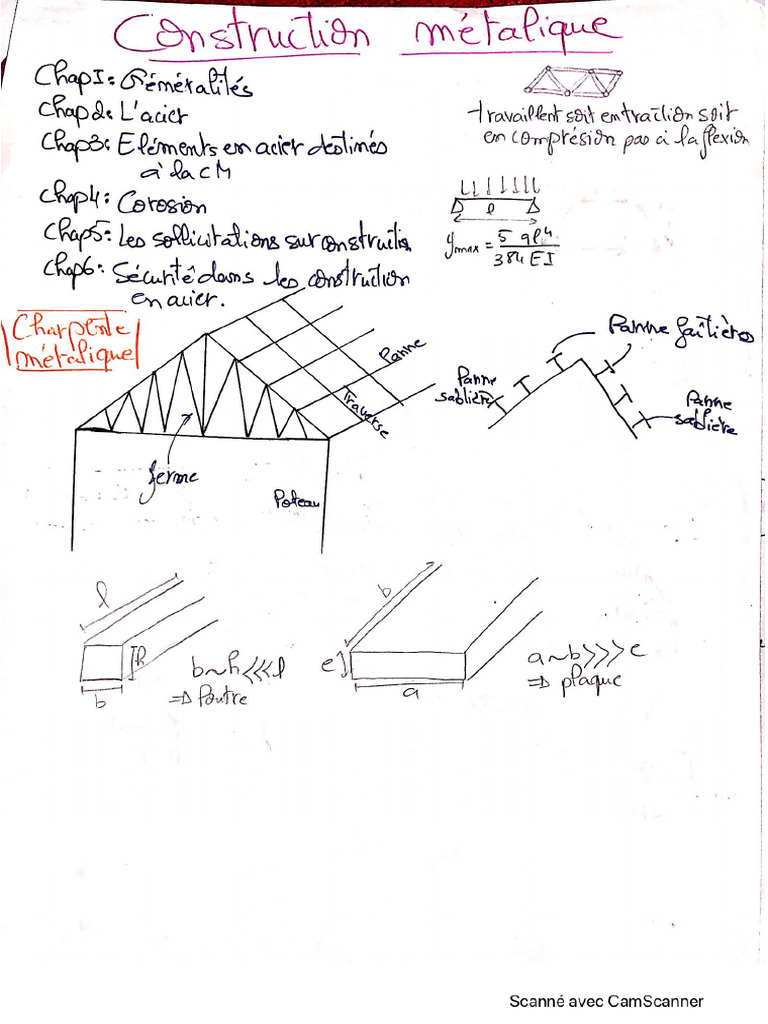 Construction métalique
Chap1: Généralités
Chap2: L'acier
Chap3: Eléments en acier destinés
à la CM
Chap4: Corosion
Chap5: Les sollicitations sur constructio
Chap6: Sécurité dans les construction
en acier.
travaillent soit en traction soit
en compression pas à la flexion
l
ymax = 5 ql⁴ / 384 EI
Charpente
métalique
Panne
Traverse
ferme
Poteau
Panne faîtières
Panne
sablière
Panne
sablière
l
h
b
b~h<<<l
=> Poutre
b
e
a
a~b>>>e
=> plaque
Scanné avec CamScanner